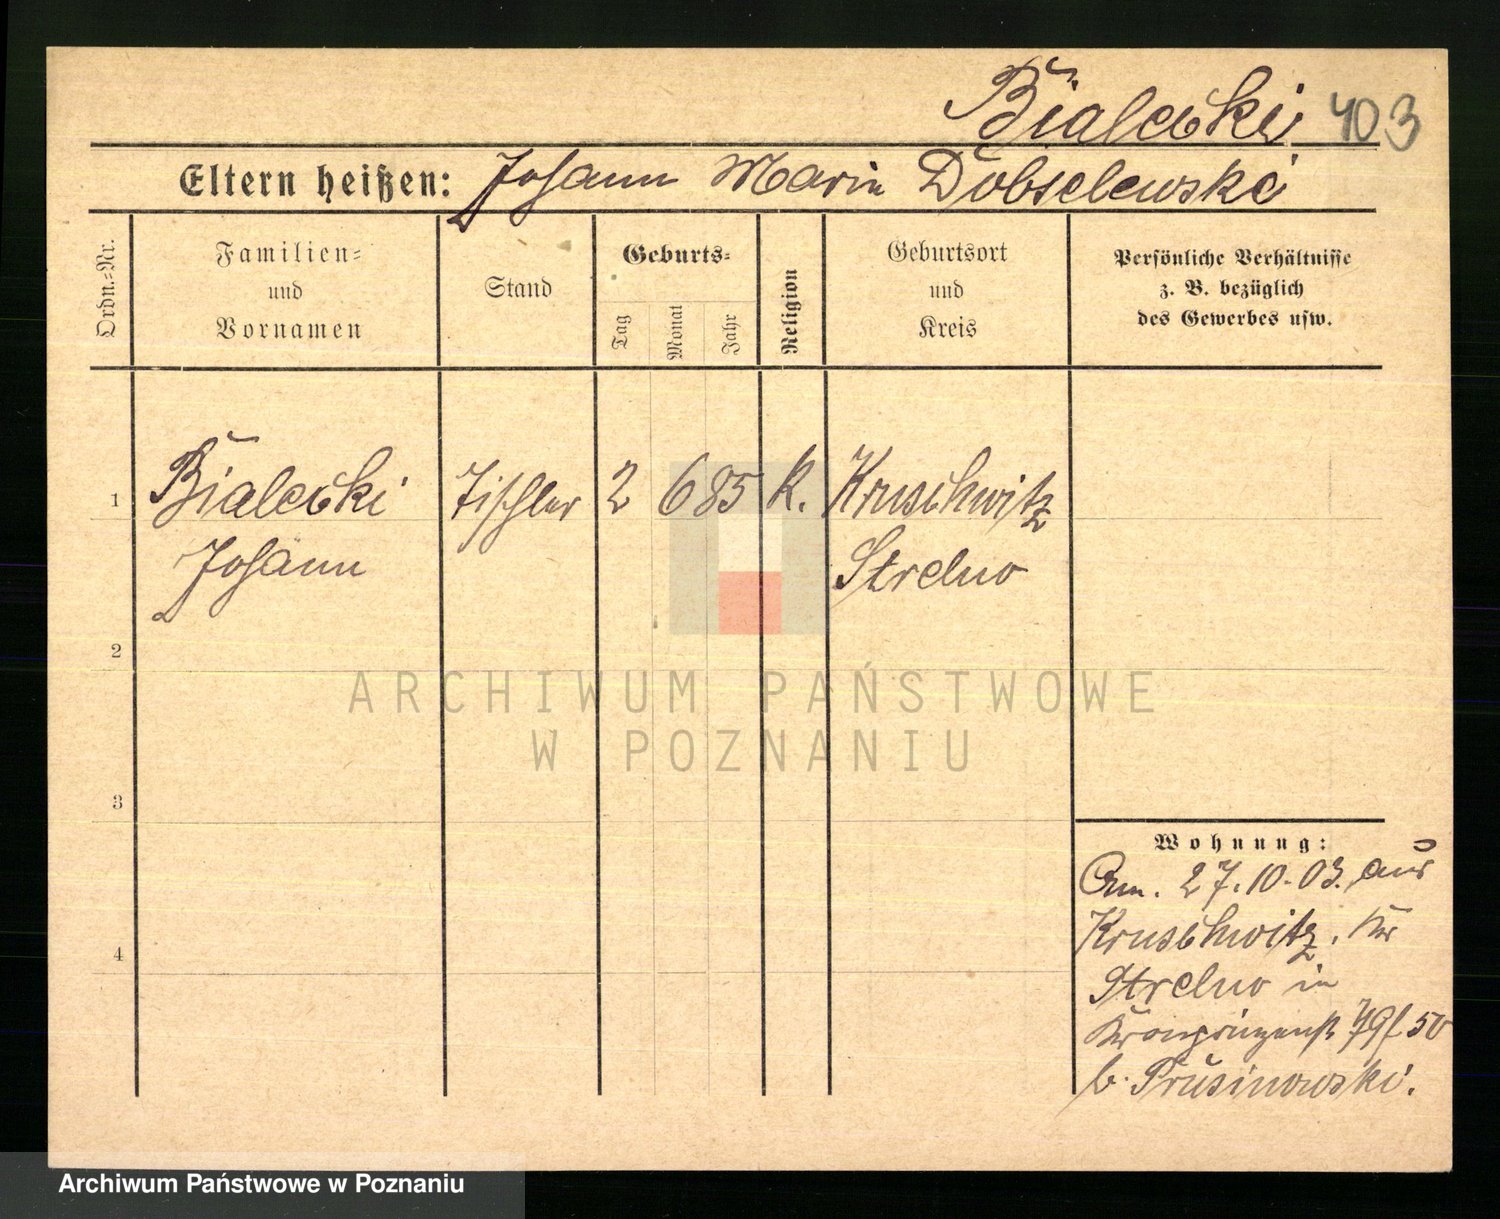 Bialecki 403
Eltern heißen: Johann Marie Dobselewski
Ordn.-Nr.
Familien-
und
Vornamen
Stand
Geburts-
Tag
Monat
Jahr
Religion
Geburtsort
und
Kreis
Persönliche Verhältnisse
z. B. bezüglich
des Gewerbes usw.
1 Bialecki Tischler 2 6 85 K. Kruschwitz
Johann Strelno
2
ARCHIWUM PAŃSTWOWE
W POZNANIU
3
4
Wohnung:
27.10.03. aus
Kruschwitz. Kr
Strelno in
Kronprinzenst 50
b. Prusinowski.
Archiwum Państwowe w Poznaniu